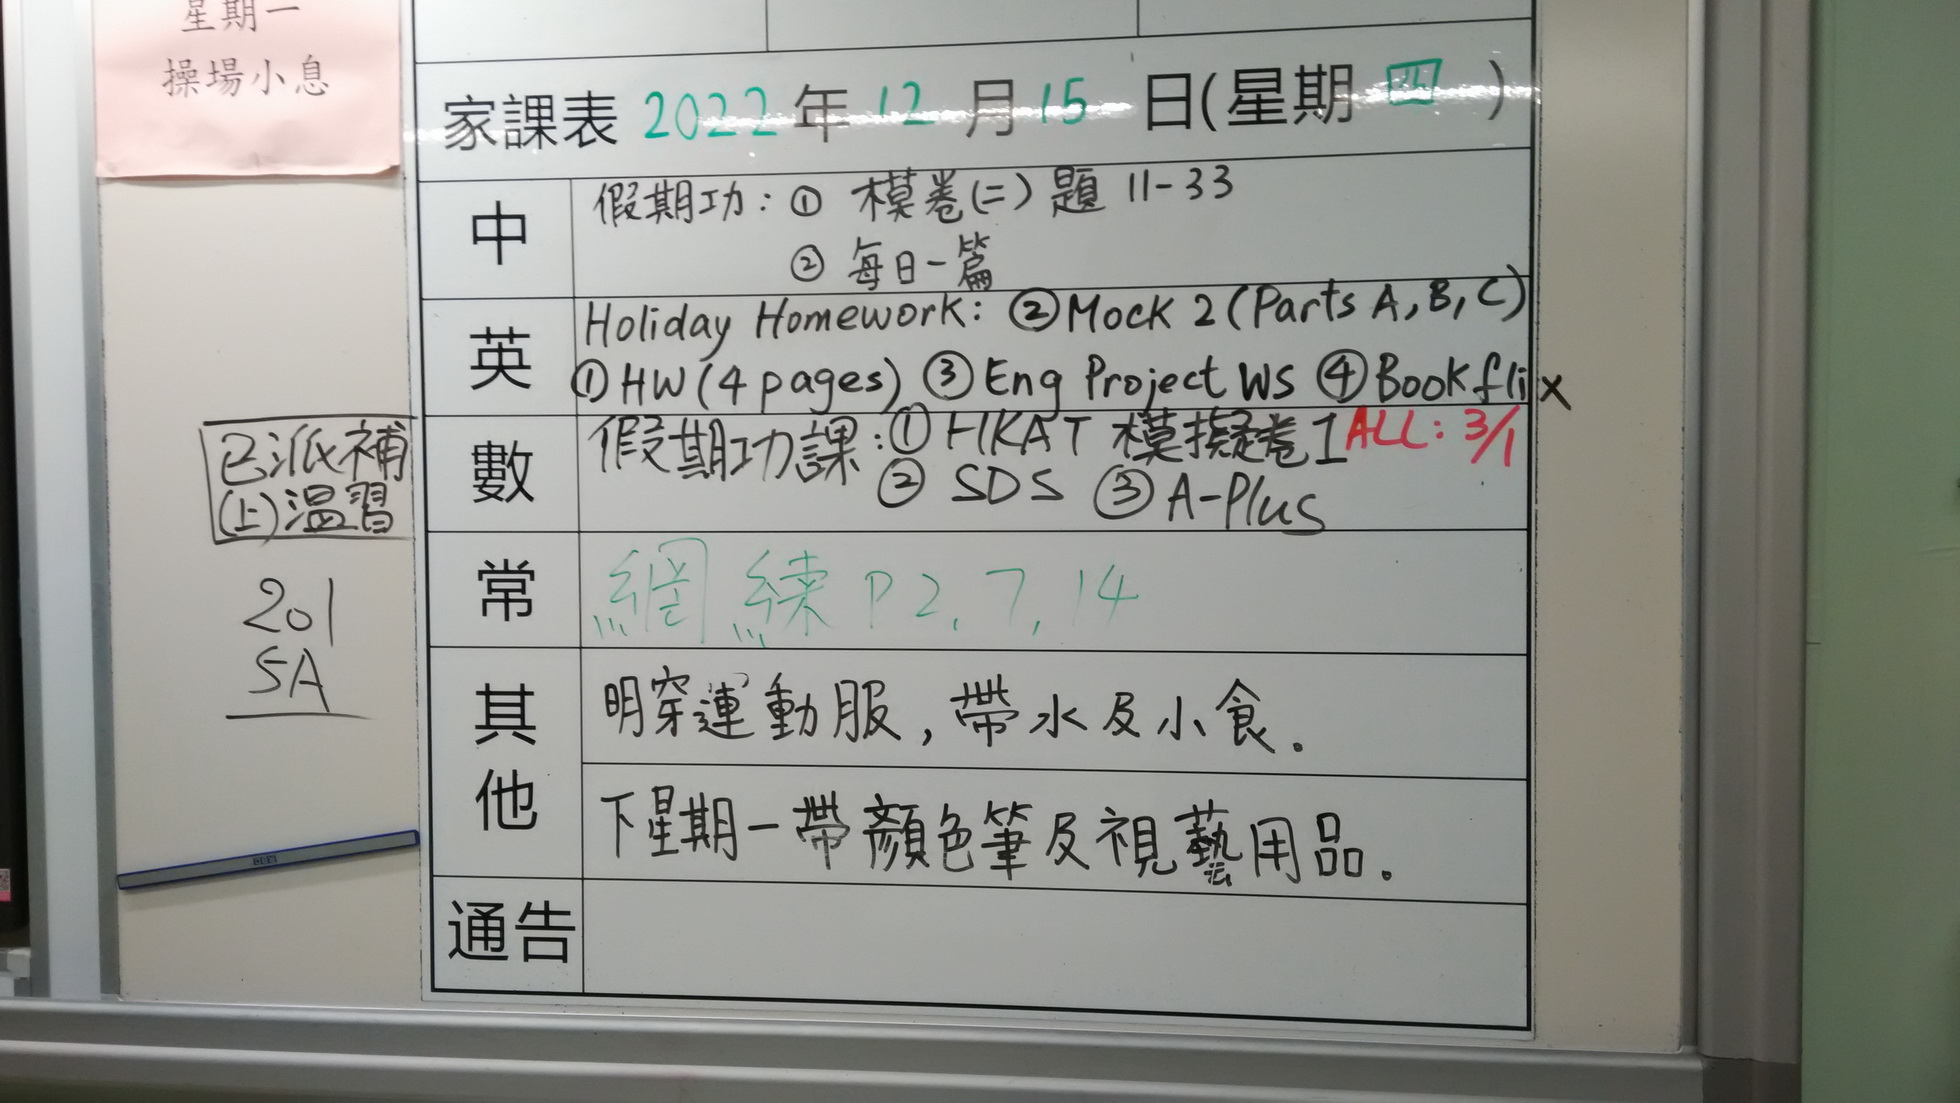 星期一
操場小息
家課表 2022年12月15日(星期四)
中
假期功：① 模卷(二) 題 11-33
② 每日一篇
英
Holiday Homework: ② Mock 2 (Parts A, B, C)
① HW (4 pages) ③ Eng Project WS ④ Bookflix
數
假期功課：① HKAT 模擬卷1 ALL: 3/1
② SDS ③ A-Plus
常
網練 P2, 7, 14
其他
明穿運動服，帶水及小食.
下星期一帶顏色筆及視藝用品.
通告
已派補
(上)溫習
201
5A